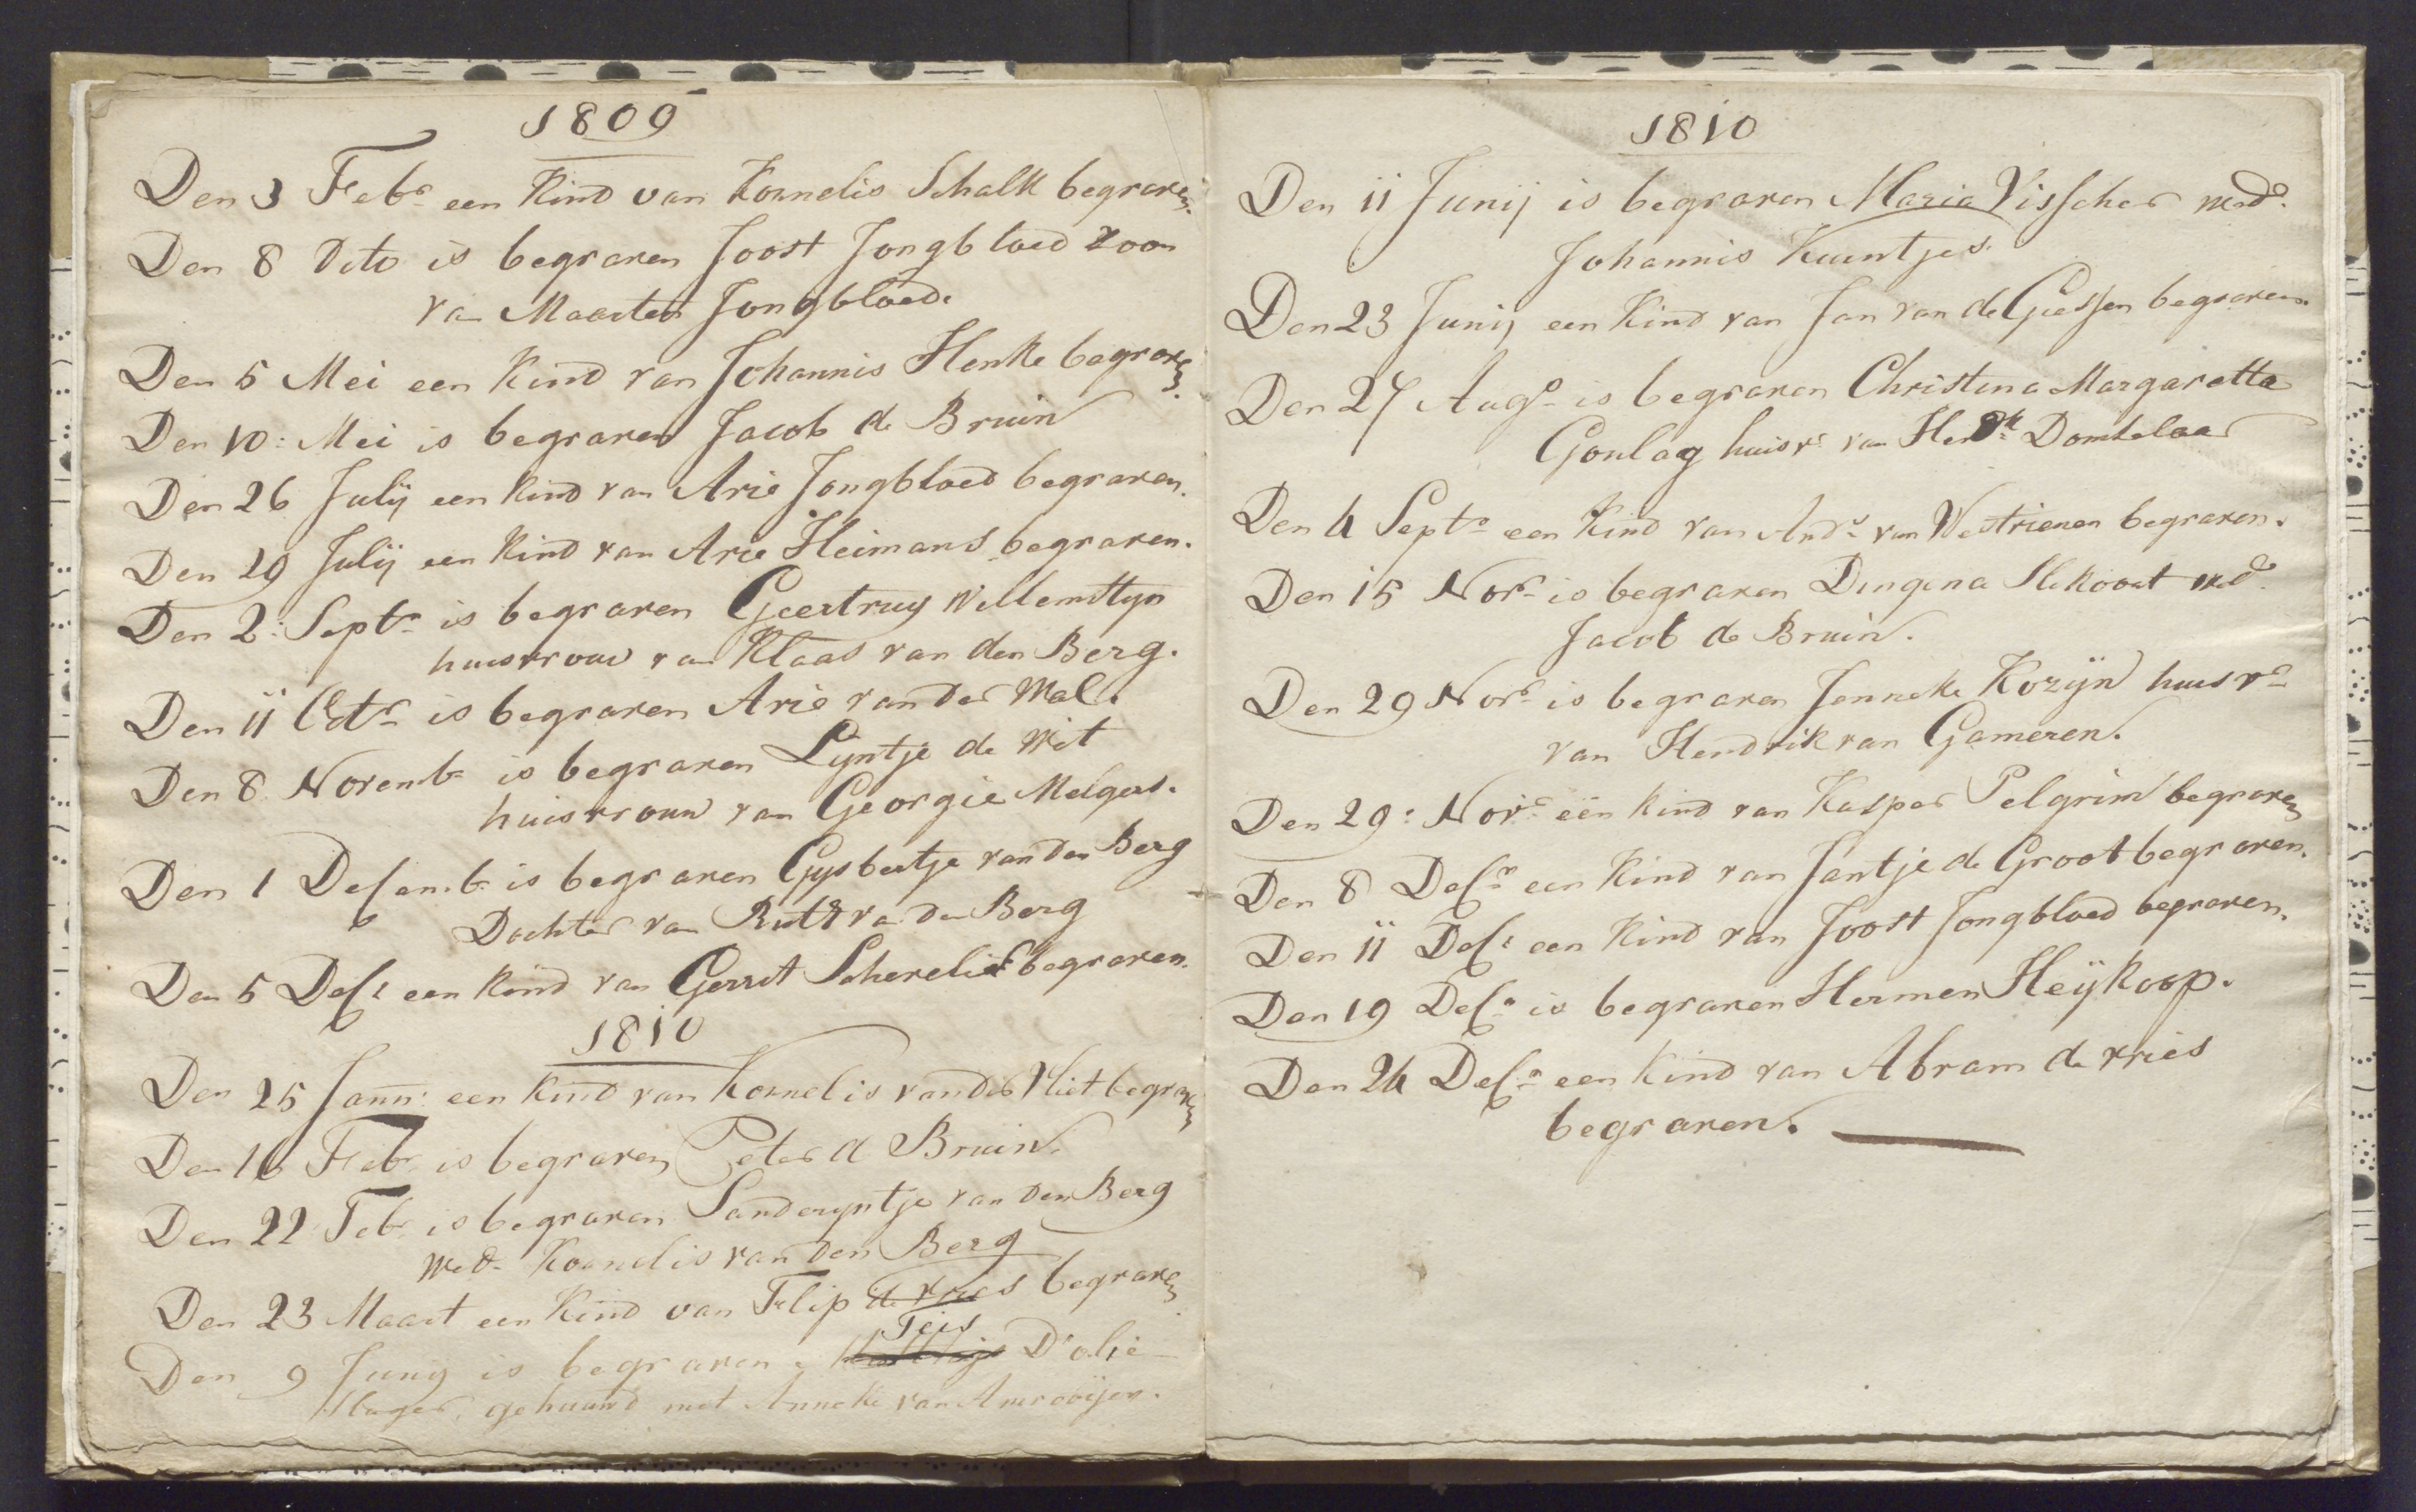 1809
Den 3 Febr een Kind van Kornelis Schalk begraven.
Den 8 Dito is begraven Joost Jongbloed zoon
van Maarten Jongbloed.
Den 5 Mei een Kind van Johannis Henke begraven.
Den 10: Mei is begraven Jacob de Bruin
Den 26 Julij een kind van Arie Jongbloed begraven.
Den 29 Julij een kind van Arie Heimans begraven.
Den 2: Septr is begraven Geertruy Willemstyn
huisvrouw van Klaas van den Berg.
Den 11 Octr is begraven Arie van der Wal.
Den 8 Novembr is begraven Lyntje de Wit
huisvrouw van Georgie Melgers.
Den 1 Desembr is begraven Gysbertje van den Berg
Dochter van Rutt van den Berg
Den 5 Des: een kind van Gerrit Scherelis begraven.
1810
Den 25 Jann: een kind van Kornelis van der Vliet begraven
Den 16 Febr is begraven Peter de Bruin.
Den 22 Feb is begraven Sanderyntje van den Berg
Wed. Kornelis van den Berg
Den 23 Maart een Kind van Flip de Vries begraven
Teis
Den 9 Juny is begraven D'olie
slager, gehuuwd met Anneke van Amerooijen.
1810
Den 11 Junij is begraven Maria Visscher Wedo.
Johannis Kuentjes.
Den 23 Junij een Kind van Jan van de Giessen begraven.
Den 27 Augo is begraven Christina Margaretta
Goulag huisv. van Hendk Domselaar
Den 4 Septr een Kind van Andrs van Westrienen begraven.
Den 15 Novr is begraven Dingena Slekovat Wedo
Jacob de Bruin.
Den 29 Novr is begraven Jenneke Kozijn huisvr
van Hendrik van Gameren.
Den 29: Novr een kind van Kasper Pelgrim begraven
Den 8 Desr een Kind van Jantje de Groot begraven.
Den 11 Des: een Kind van Joost Jongbloed begraven.
Den 19 Desr is begraven Hermen Heijkoop.
Den 24 Desr een Kind van Abram de Vries
begraven.